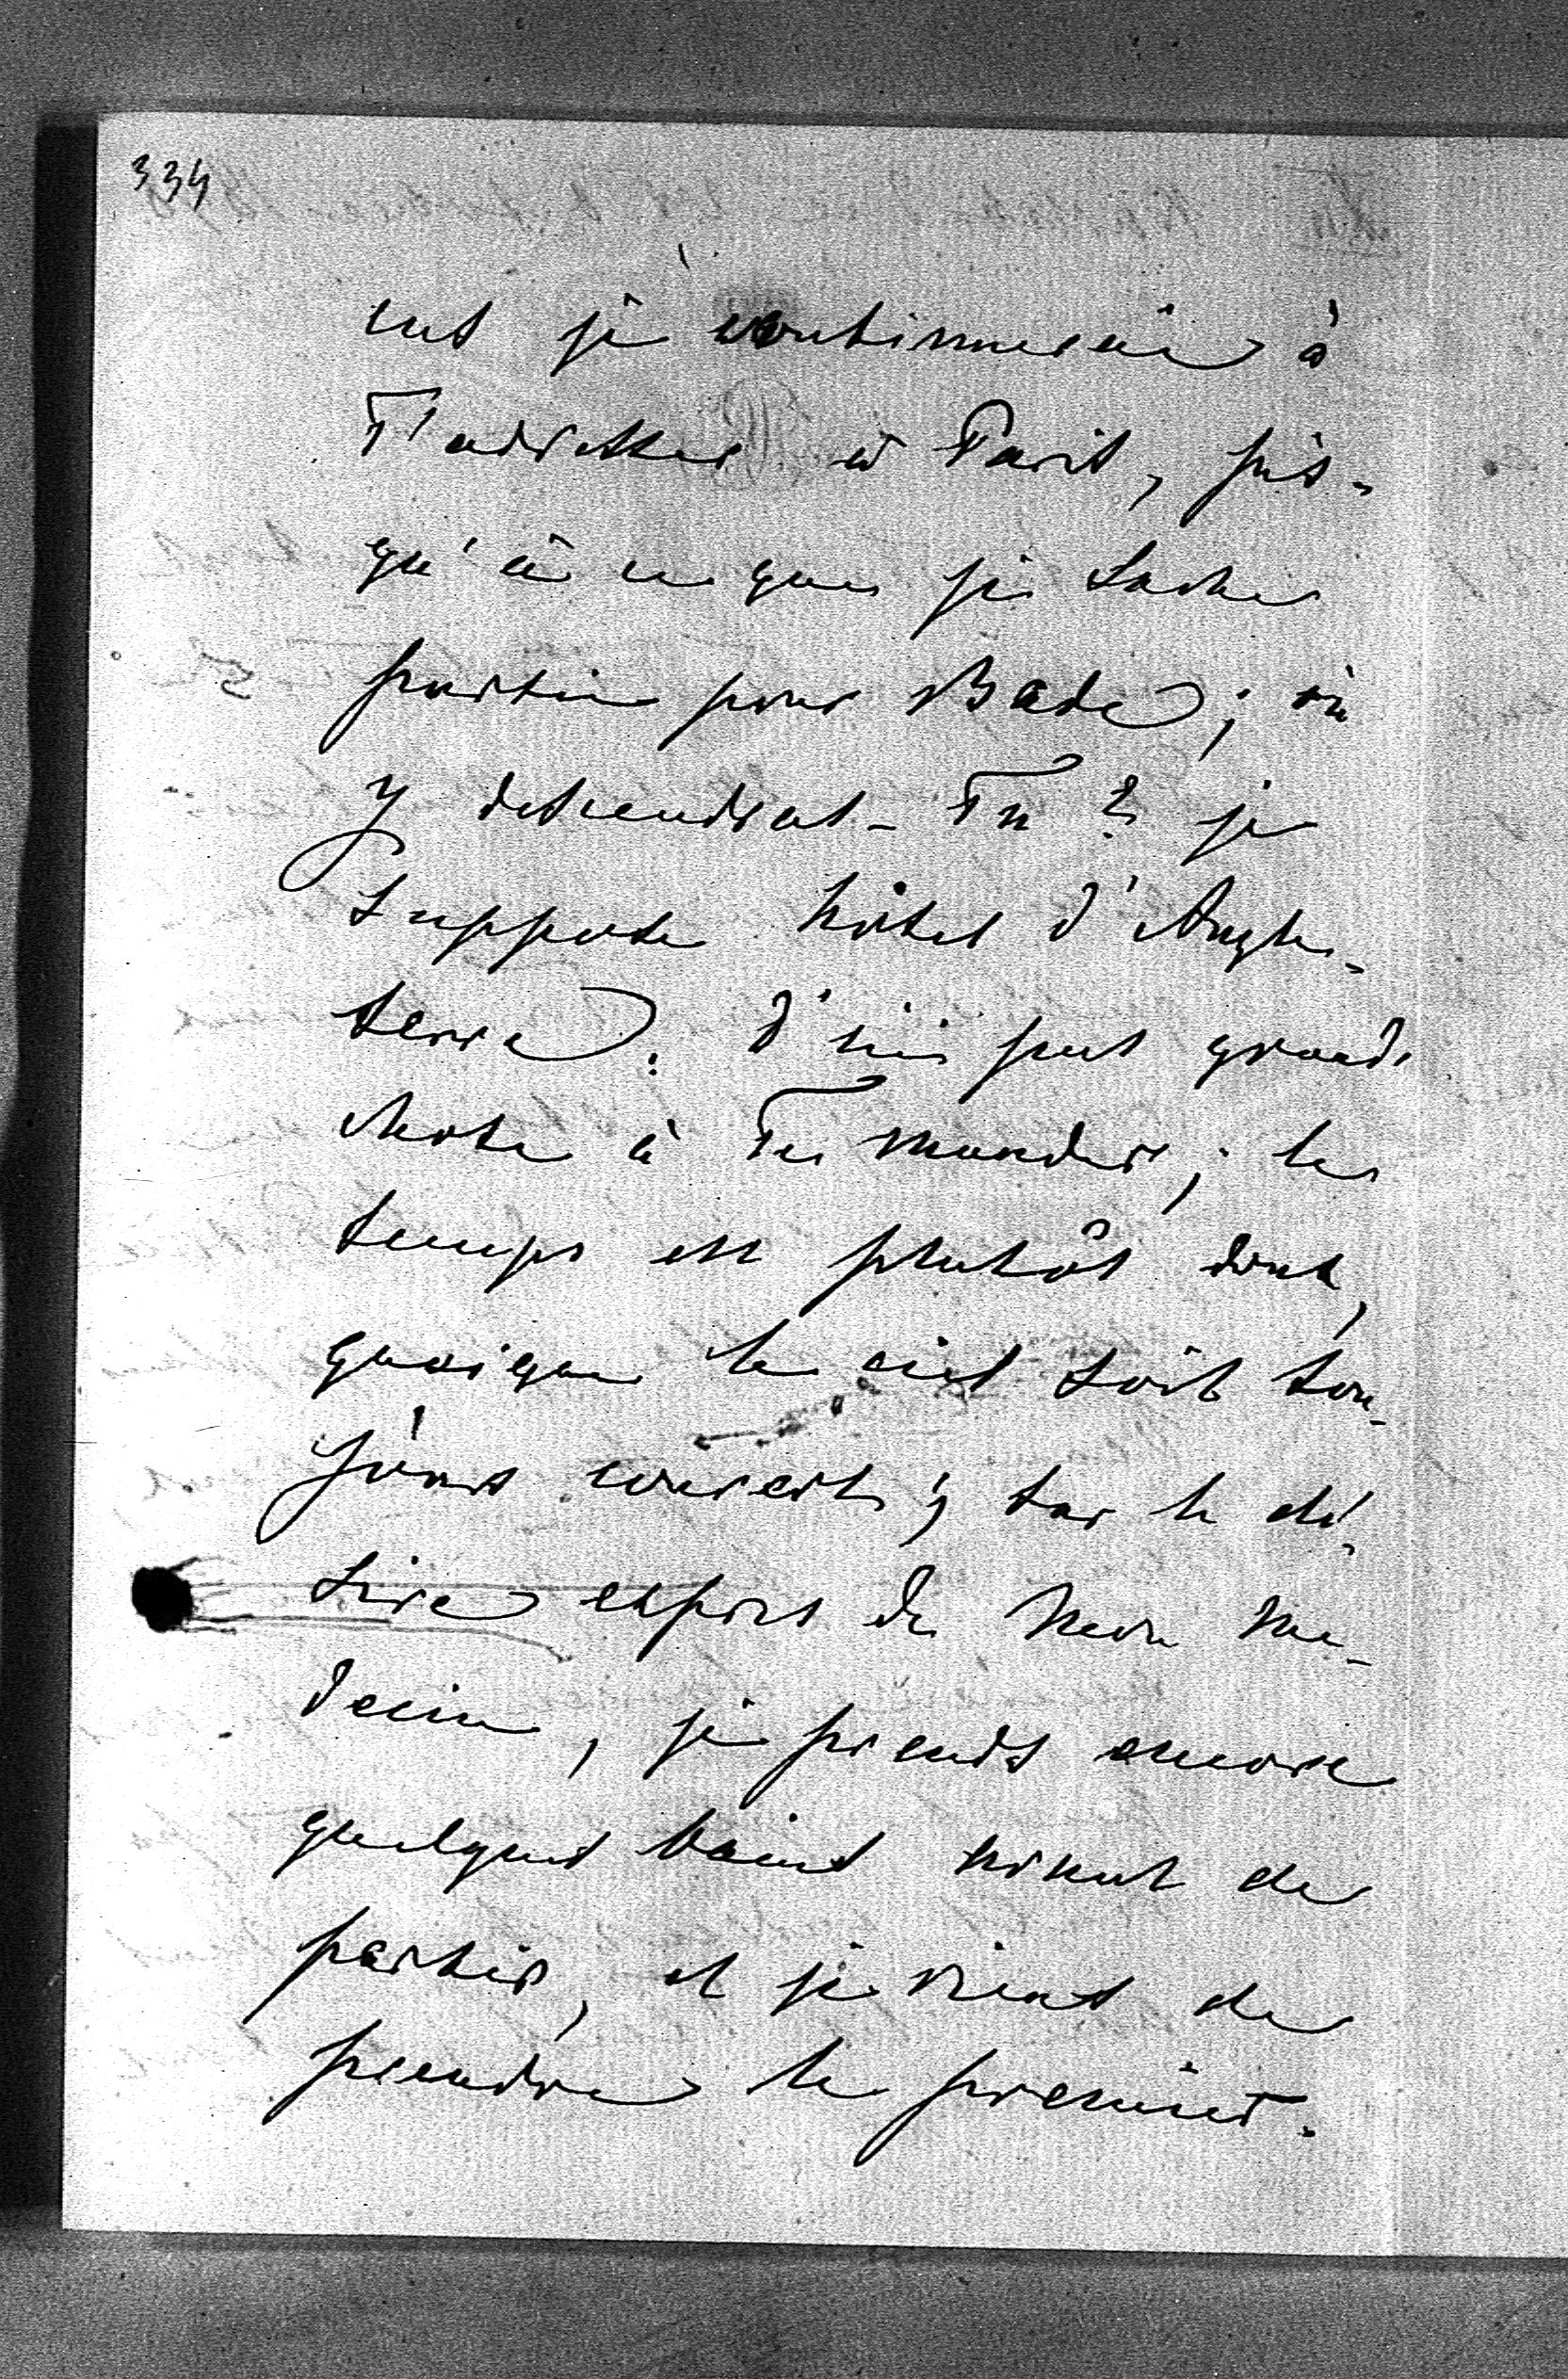 334
cus je continuerai à
T'adresser à Paris, jus-
qu'à ce que je sache
partie pour Bade; où
y descendras-Tu? je
suppose hôtel d'Angle-
terre. D'ici pas grand'
chose à Te mander; le
temps est plutôt doux,
quoique le ciel soit tou-
jours couvert; sur le dé-
sire exprès de mon mé-
decin, je prends encore
quelques bains avant de
partir, et je viens de
prendre le premier.